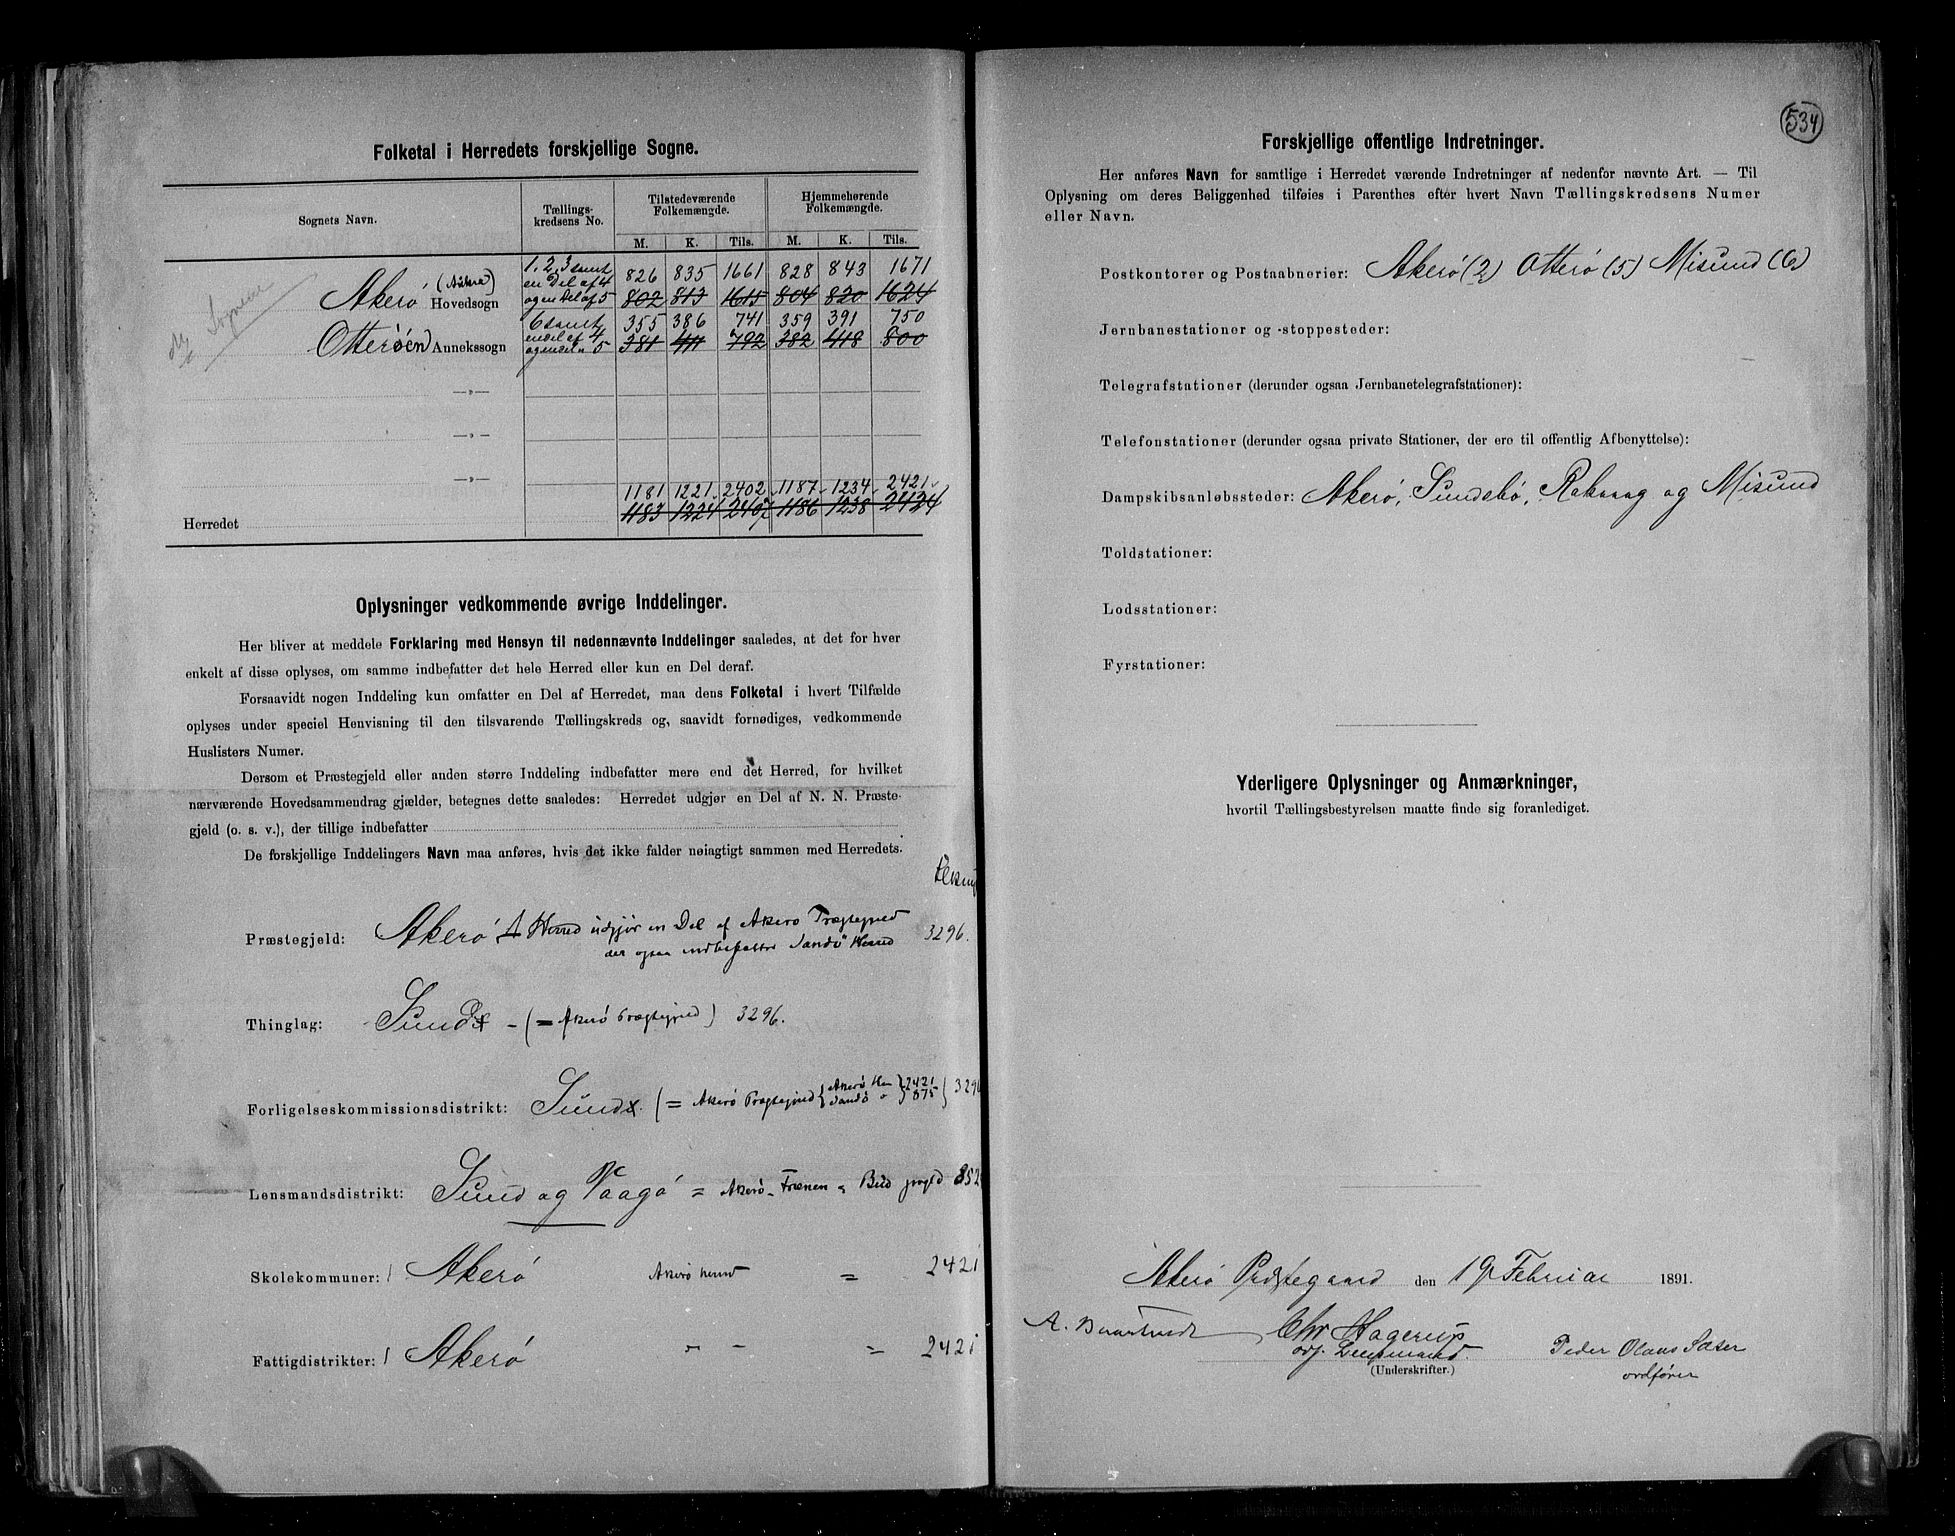 Folketal i Herredets forskjellige Sogne.
Sognets Navn. Tællings-kredsens No. Tilstedeværende Folkemængde. Hjemmehørende Folkemængde.
M. K. Tils. M. K. Tils.
Akerø (Aukra) Hovedsogn 1, 2, 3 samt en Del af 4 og en Del af 5 826 835 1661 828 843 1671
802 813 1615 804 820 1624
Otterø(en) Annekssogn 6 samt endel af 4 og endel " 5 355 386 741 359 391 750
381 411 792 382 418 800
— „ —
— „ —
— „ —
1181 1221 2402 1187 1234 2421
Herredet 1183 1224 2407 1186 1238 2424
Oplysninger vedkommende øvrige Inddelinger.
Her bliver at meddele Forklaring med Hensyn til nedennævnte Inddelinger saaledes, at det for hver
enkelt af disse oplyses, om samme indbefatter det hele Herred eller kun en Del deraf.
Forsaavidt nogen Inddeling kun omfatter en Del af Herredet, maa dens Folketal i hvert Tilfælde
oplyses under speciel Henvisning til den tilsvarende Tællingskreds og, saavidt fornødiges, vedkommende
Huslisters Numer.
Dersom et Præstegjeld eller anden større Inddeling indbefatter mere end det Herred, for hvilket
nærværende Hovedsammendrag gjælder, betegnes dette saaledes: Herredet udgjør en Del af N. N. Præste-
gjeld (o. s. v.), der tillige indbefatter
De forskjellige Inddelingers Navn maa anføres, hvis det ikke falder nøiagtigt sammen med Herredets.
Præstegjeld: Akerø Herred udgjør en Del af Akerø Præstegjeld 3296.
der ogsaa indbefatter Sandø Herred
Thinglag: Sund - (= Akerø Præstegjeld) 3296.
Forligelseskommissionsdistrikt: Sund (= Akerø Præstegjeld { Akerø He 2421 Sandø " 875 }
Lensmandsdistrikt: Sund og Vaagø = Akerø - Frænen
Skolekommuner: 1 Akerø Akerø herred = 2421
Fattigdistrikter: 1 Akerø " - = 2421
534
Forskjellige offentlige Indretninger.
Her anføres Navn for samtlige i Herredet værende Indretninger af nedenfor nævnte Art. — Til
Oplysning om deres Beliggenhed tilføies i Parenthes efter hvert Navn Tællingskredsens Numer
eller Navn.
Postkontorer og Postaabnerier: Akerø (2) Otterø (5) Misund (6)
Jernbanestationer og -stoppesteder:
Telegrafstationer (derunder ogsaa Jernbanetelegrafstationer):
Telefonstationer (derunder ogsaa private Stationer, der ere til offentlig Afbenyttelse):
Dampskibsanløbssteder: Akerø, Sundsbø, Rakvaag og Misund
Toldstationer:
Lodsstationer:
Fyrstationer:
Yderligere Oplysninger og Anmærkninger,
hvortil Tællingsbestyrelsen maatte finde sig foranlediget.
Akerø Præstegaard den 19 Februar 1891.
A. Chr Hagerup Peder Olaus Sæter
Lensmand. ordfører
(Underskrifter.)